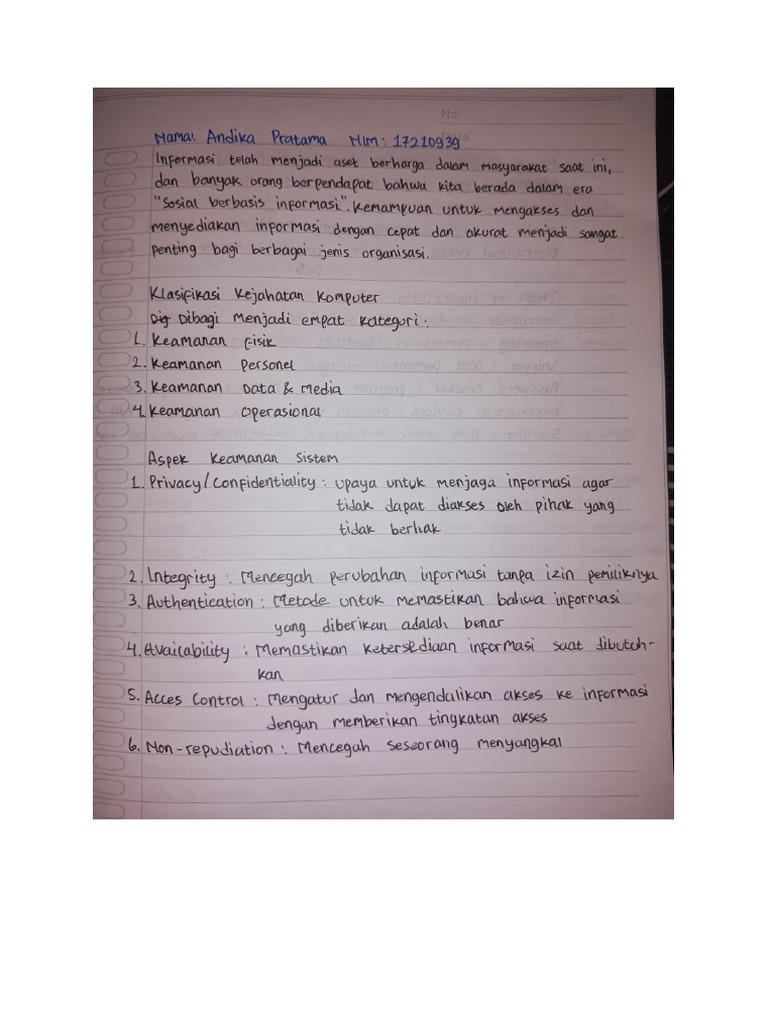 No. :
Nama: Andika Pratama NIM: 17210939
Informasi telah menjadi aset berharga dalam masyarakat saat ini,
dan banyak orang berpendapat bahwa kita berada dalam era
"Sosial berbasis informasi". Kemampuan untuk mengakses dan
menyediakan informasi dengan cepat dan akurat menjadi sangat
penting bagi berbagai jenis organisasi.
Klasifikasi Kejahatan Komputer
Dibagi menjadi empat kategori :
1. Keamanan Fisik
2. Keamanan Personel
3. Keamanan Data & Media
4. Keamanan Operasional
Aspek Keamanan Sistem
1. Privacy / Confidentiality : upaya untuk menjaga informasi agar
tidak dapat diakses oleh pihak yang
tidak berhak
2. Integrity : Mencegah perubahan informasi tanpa izin pemiliknya
3. Authentication : Metode untuk memastikan bahwa informasi
yang diberikan adalah benar
4. Availability : Memastikan ketersediaan informasi saat dibutuh-
kan
5. Acces Control : Mengatur dan mengendalikan akses ke informasi
dengan memberikan tingkatan akses
6. Non-repudiation : Mencegah seseorang menyangkal